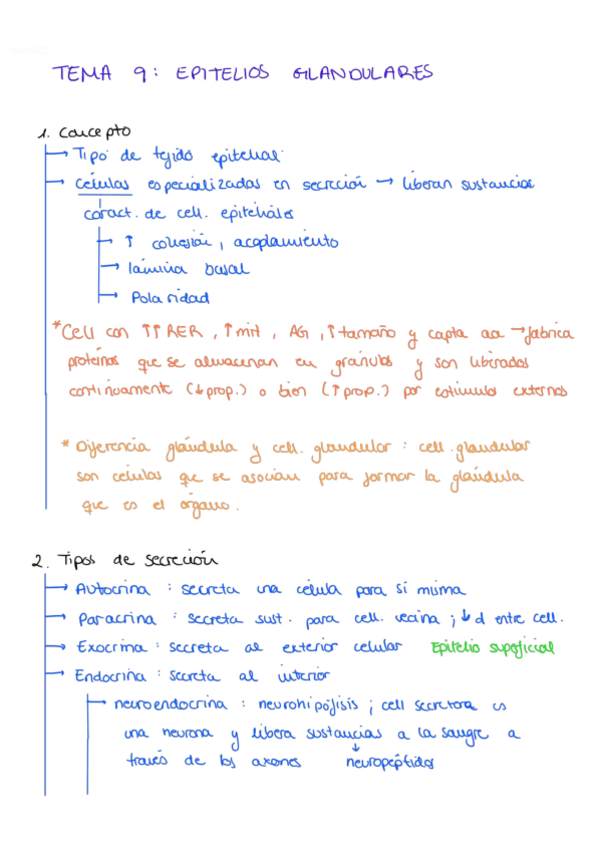 TEMA 9: EPITELIOS GLANDULARES
1. Concepto
→ Tipo de tejido epitelial
→ Células especializadas en secreción → liberan sustancias
caract. de cell. epiteliales
→ ↑ cohesión, acoplamiento
→ lámina basal
→ Polaridad
*Cell con ↑↑ RER, ↑mit, AG, ↑tamaño y capta aa → fabrica
proteínas que se almacenan en gránulos y son liberados
continuamente (↓prop.) o bien (↑prop.) por estímulos externos
* Diferencia glándula y cell. glandular: cell. glandular
son células que se asocian para formar la glándula
que es el órgano.
2. Tipos de secreción
→ Autocrina: secreta una célula para sí misma
→ Paracrina: secreta sust. para cell. vecina; ↓d entre cell.
→ Exocrina: secreta al exterior celular Epitelio superficial
→ Endocrina: secreta al interior
→ neuroendocrina: neurohipófisis; cell secretora es
una neurona y libera sustancias a la sangre a
través de los axones ↓ neuropéptidos